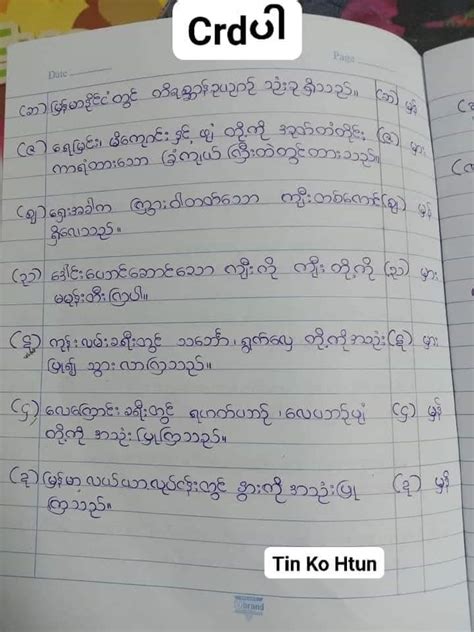 Crdပါ
Date
Page
(ဆ) မြန်မာနိုင်ငံတွင် တိရစ္ဆာန်ဥယျာဉ် သုံးခု ရှိသည်။ (ဆ) မှန်
(ဇ) ရေမြင်း၊ မိကျောင်း နှင့် ဖျံ တို့ကို အုတ်တံတိုင်း (ဇ) မှား
ကာရံထားသော ခြံကျယ် ကြီးထဲတွင်ထားသည်။
(ဈ) ရှေးအခါက ကြွားဝါတတ်သော ကျီးတစ်ကောင် (ဈ) မှန်
ရှိလေသည်။
(ည) ဒေါင်းယောင်ဆောင်သော ကျီးကို ကျီး တို့ကို (ည) မှား
မမုန်းတီးကြပါ။
(ဋ) ကုန်းလမ်းခရီးတွင် သင်္ဘော၊ ရွက်လှေ တို့ကိုအသုံး (ဋ) မှား
ပြု၍ သွားလာကြသည်။
(ဌ) လေကြောင်းခရီးတွင် ရဟတ်ယာဉ်၊ လေယာဉ်ပျံ (ဌ) မှန်
တို့ကို အသုံးပြုကြသည်။
(ဍ) မြန်မာ့လယ်ယာလုပ်ငန်းတွင် နွားကို အသုံးပြု (ဍ) မှန်
ကြသည်။
Tin Ko Htun